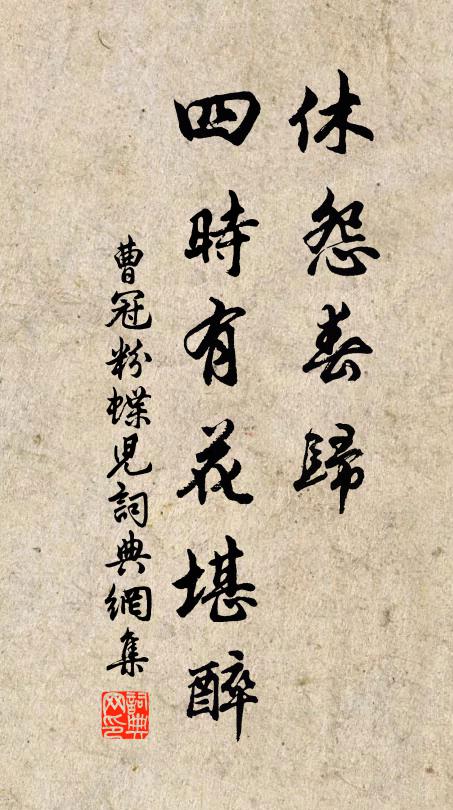 休怨春歸
四時有花堪醉
曹冠粉蝶兒詞典網集
詞典
网印